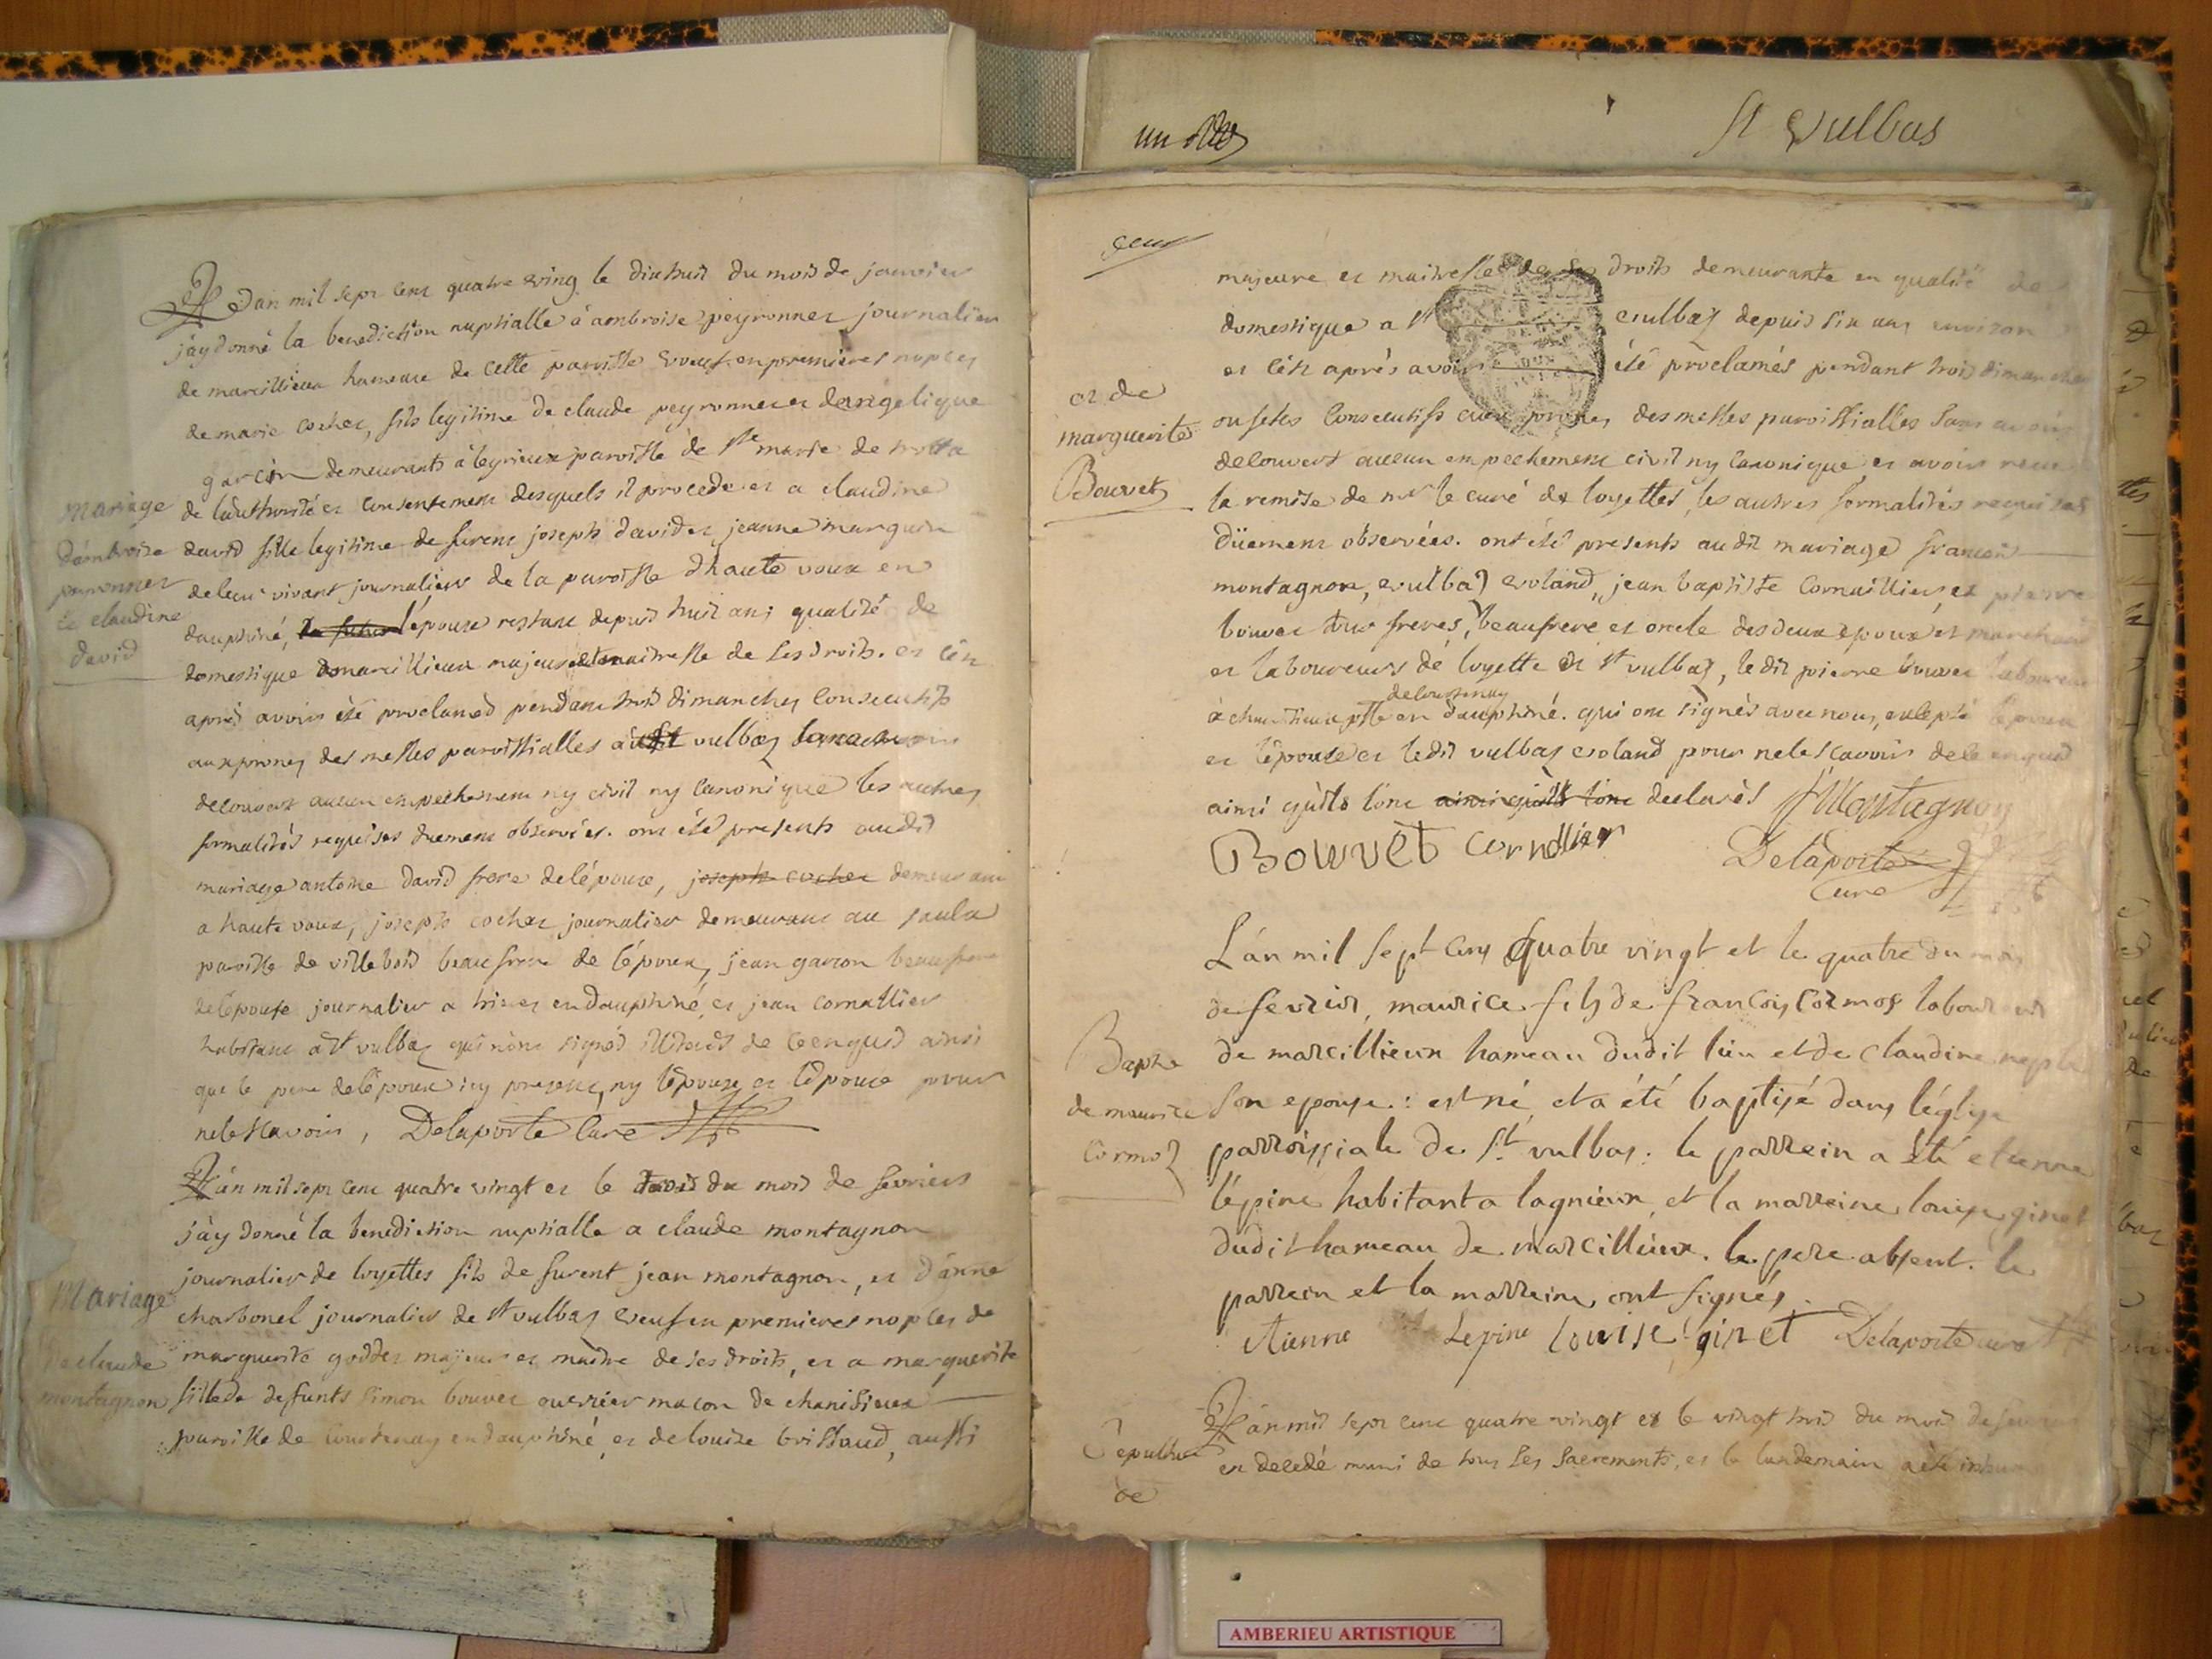 St Vulbas
L'an mil sept cent quatre ving le dixhuit du mois de janvier
j'ay donné la benediction nuptialle a ambroise peyronnet journalier
de marcillieux hameau de cette paroisse veuf en premieres noples
de marie cochet, fils legitime de claude peyronnet et dangelique
garcin demeurants à leyrieux paroisse de ste marie de
de lauthorité et consentement desquels il procede et a claudine
david fille legitime de furent joseph david et jeanne marguin
de leur vivant journaliers de la paroisse dhaute vaux en
dauphiné, la future l'épouse restant depuis huit ans qualité de
domestique a marcillieux majeure et maitresse de ses droits. et cén
aprés avoir été proclamés pendant trois dimanches consecutifs
aux prones des messes paroissialles a st vulbas sans avoir
decouvert aucun empechement ny civil ny canonique les autres
formalités requises duement observées. ont été presents audit
mariage antoine david frere de lépouse, joseph cochet demeurant
a haute vaux, joseph cochet journalier demeurant au saula
paroisse de villebois beaufrere de l'époux, jean garcon beaufrere
de lépouse journalier a en dauphiné, et jean cornallier
habitant a st vulbas qui n'ont signés de ce enquis ainsi
que le pere de l'époux icy present, ny lépoux et lépouse pour
ne le scavoir, Delaporte Curé
Mariage
d'ambroise
peronnet
et claudine
david
L'an mil sept cent quatre vingt et le trois du mois de fevrier
j'ay donné la benediction nuptialle a claude montagnon
journalier de loyettes fils de furent jean montagnon, et d'anne
charbonel journalier de st vulbas veuf en premieres noples de
marguerite goddet majeur et maitre de ses droits, et a marguerite
fille de defunts simon bouvet ouvrier macon de chanisieux
paroisse de Courtenay en dauphiné, et de louise brissaud, aussi
Mariage
de claude
montagnon
majeure et maitresse de ses droits demeurante en qualité de
domestique a st vulbas depuis six ans environ
et cén aprés avoir été proclamés pendant trois dimanches
ou fetes consecutifs aux prones des messes paroissialles sans avoir
decouvert aucun empechement civil ny canonique et avoir receu
la remise de mr le curé de loyettes, les autres formalités requises
düement observées. ont été presents audit mariage francois
montagnon, vulbas voland, jean baptiste Cornaillier, et pierre
bouvet freres, beaufrere et oncle des deux epoux et marchand
et laboureurs de loyette et st vulbas, le dit pierre bouvet laboureur
decourtenay
à chanisieux psse en dauphiné. qui ont signés avec nous, excepté lépoux
et lépouse et ledit vulbas voland pour ne le scavoir de ce enquis
ainsi qu'ils l'ont ainsi qu'ils l'ont declarés fMontagnon
Bouvet Cornallier Delaporte
Curé
et de
marguerite
Bouvet
L'an mil sept cens quatre vingt et le quatre du mois
de fevrier, maurice fils de francois Cormos laboureur
de marcillieux hameau dudit lieu et de claudine
son epouse: est né et a été baptisé dans léglise
parroissiale de st vulbas. le parrein a été etienne
lépine habitant a lagnieux, et la marreine louise ginet
dudit hameau de marcillieux. le pere absent. le
parrein et la marreine ont signés.
Etienne Lepine Louise ginet Delaporte curé
Bapte
de maurice
Cormoz
L'an mil sept cent quatre vingt et le vingt trois du mois de fevrier
est decedé muni de tous les sacrements, et le landemain a été inhumé
Sepulture
de
AMBERIEU ARTISTIQUE